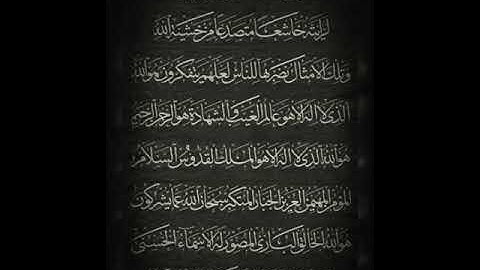 لرأيته خاشعا متصدعا من خشية الله
وتلك الأمثال نضربها للناس لعلهم يتفكرون هو الله
الذي لا إله إلا هو عالم الغيب والشهادة هو الرحمن الرحيم
هو الله الذي لا إله إلا هو الملك القدوس السلام
المؤمن المهيمن العزيز الجبار المتكبر سبحان الله عما يشركون
هو الله الخالق البارئ المصور له الأسماء الحسنى